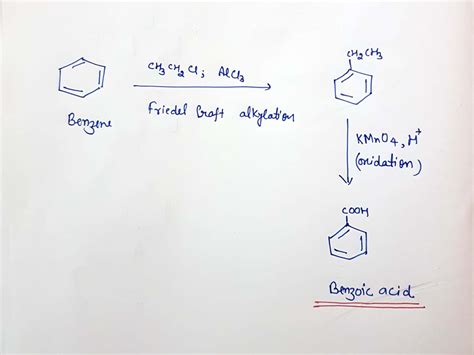 CH3CH2Cl; AlCl3
Benzene
Friedel Craft alkylation
CH2CH3
KMnO4, H+
(oxidation)
COOH
Benzoic acid